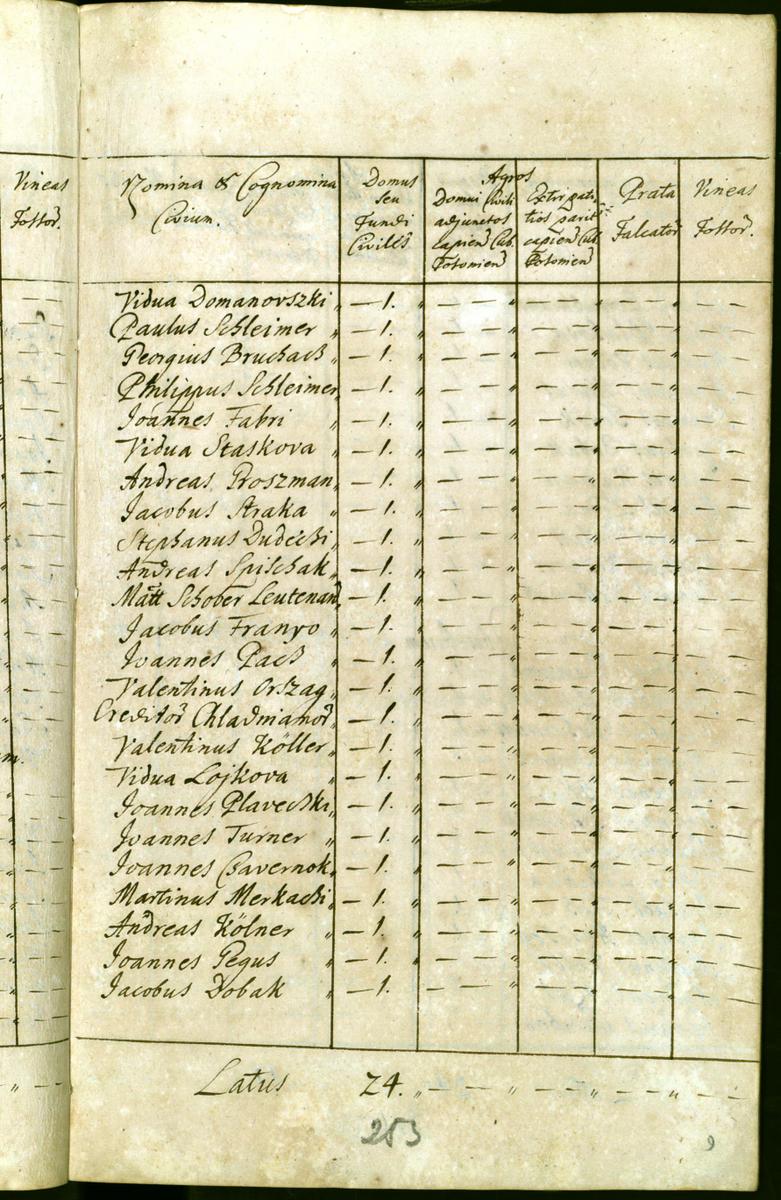 Vineas
Fossor̃.
Nomina & Cognomina
Civium.
Domus
seu
Fundi
Civiles
Agros
Domui Civili
adjunctos
capien̄ Cub.
Posonien̄
Extirpati-
tios parit:
capien̄ Cub.
Posonien̄
Prata
Falcator̃
Vineas
Fossor̃.
Vidua Domanovszki „ — 1. „ — — „ — — „ — — „ — —
Paulus Schleimer „ — 1. „ — — „ — — „ — — „ — —
Georgius Bruchacs „ — 1. „ — — „ — — „ — — „ — —
Philippus Schleimer „ — 1. „ — — „ — — „ — — „ — —
Joannes Fabri „ — 1. „ — — „ — — „ — — „ — —
Vidua Staskova „ — 1. „ — — „ — — „ — — „ — —
Andreas Groszman „ — 1. „ — — „ — — „ — — „ — —
Jacobus Straka „ — 1. „ — — „ — — „ — — „ — —
Stephanus Dudecski „ — 1. „ — — „ — — „ — — „ — —
Andreas Spischak „ — 1. „ — — „ — — „ — — „ — —
Matt Schober Leutenand „ — 1. „ — — „ — — „ — — „ — —
Jacobus Franyo „ — 1. „ — — „ — — „ — — „ — —
Joannes Pacs „ — 1. „ — — „ — — „ — — „ — —
Valentinus Orszag „ — 1. „ — — „ — — „ — — „ — —
Creditor̃ Chladnianor̃ „ — 1. „ — — „ — — „ — — „ — —
Valentinus Köller „ — 1. „ — — „ — — „ — — „ — —
Vidua Lojkova „ — 1. „ — — „ — — „ — — „ — —
Joannes Plavecska „ — 1. „ — — „ — — „ — — „ — —
Joannes Turner „ — 1. „ — — „ — — „ — — „ — —
Joannes Csavernok „ — 1. „ — — „ — — „ — — „ — —
Martinus Merkacsi „ — 1. „ — — „ — — „ — — „ — —
Andreas Kölner „ — 1. „ — — „ — — „ — — „ — —
Joannes Pegus „ — 1. „ — — „ — — „ — — „ — —
Jacobus Dobak „ — 1. „ — — „ — — „ — — „ — —
Latus 24. „ — — „ — — „ — — „ — —
253
9